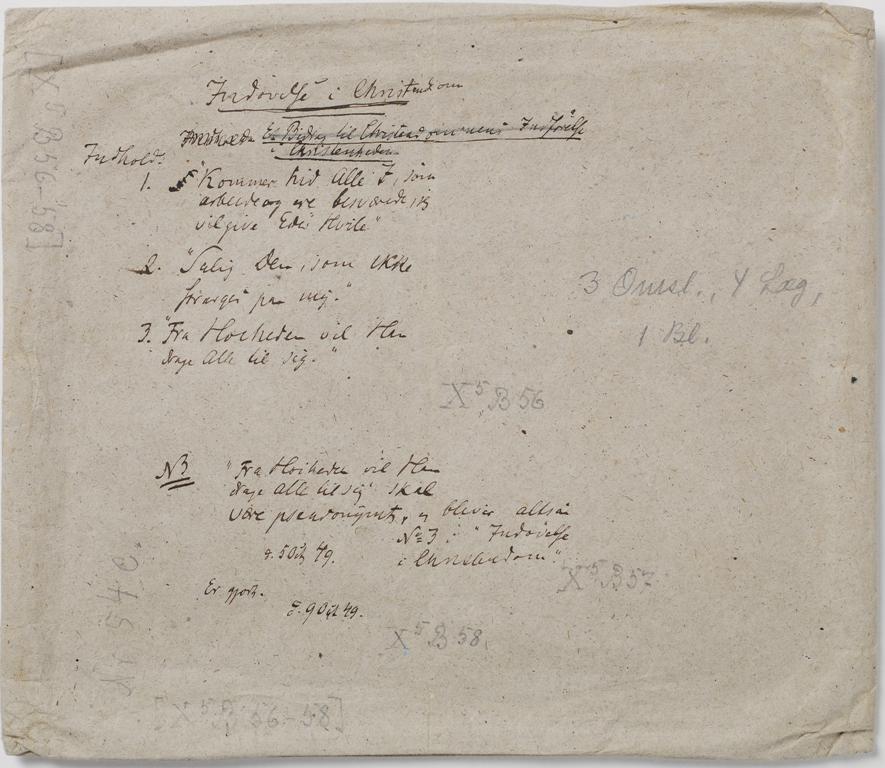 [X⁵ B 56-58]
Indøvelse i Christendom
Et Bidrag til Christendommens Indførelse
i Christenheden
Indhold.
1. "Kommer hid Alle I, som
arbeide og ere besværede, jeg
vil give Eder Hvile"
2. "Salig Den, som ikke
forarges paa mig."
3. "Fra Høiheden vil Han
drage Alle til sig."
3 Omsl., 4 Læg,
1 Bl.
X⁵ B 56
NB "Fra Høiheden vil Han
drage Alle til sig" skal
være pseudonymt, og bliver altsaa
No 3 i "Indøvelse
i Christendom".
d. 5 Oct 49.
X⁵ B 57
Er gjort.
d. 9 Oct 49.
X⁵ B 58.
54 C.
[X⁵ B 56-58]